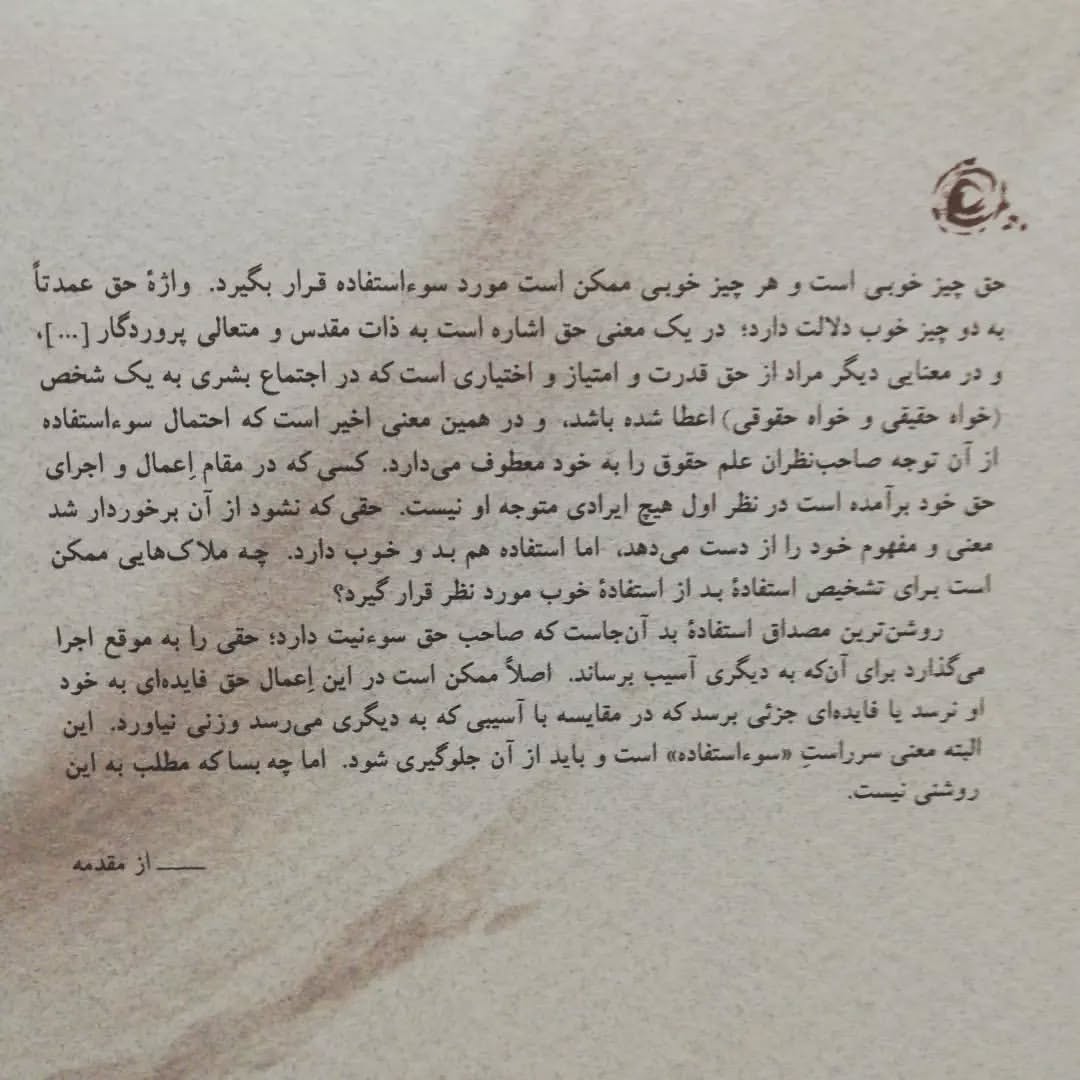 حق چیز خوبی است و هر چیز خوبی ممکن است مورد سوءاستفاده قرار بگیرد. واژهٔ حق عمدتاً
به دو چیز خوب دلالت دارد؛ در یک معنی حق اشاره است به ذات مقدس و متعالی پروردگار [...]،
و در معنایی دیگر مراد از حق قدرت و امتیاز و اختیاری است که در اجتماع بشری به یک شخص
(خواه حقیقی و خواه حقوقی) اعطا شده باشد، و در همین معنی اخیر است که احتمال سوءاستفاده
از آن توجه صاحب‌نظران علم حقوق را به خود معطوف می‌دارد. کسی که در مقام اِعمال و اجرای
حق خود برآمده است در نظر اول هیچ ایرادی متوجه او نیست. حقی که نشود از آن برخوردار شد
معنی و مفهوم خود را از دست می‌دهد، اما استفاده هم بد و خوب دارد. چه ملاک‌هایی ممکن
است برای تشخیص استفادهٔ بد از استفادهٔ خوب مورد نظر قرار گیرد؟
روشن‌ترین مصداق استفادهٔ بد آن‌جاست که صاحب حق سوءنیت دارد؛ حقی را به موقع اجرا
می‌گذارد برای آن‌که به دیگری آسیب برساند. اصلاً ممکن است در این اِعمال حق فایده‌ای به خود
او نرسد یا فایده‌ای جزئی برسد که در مقایسه با آسیبی که به دیگری می‌رسد وزنی نیاورد. این
البته معنی سرراستِ «سوءاستفاده» است و باید از آن جلوگیری شود. اما چه بسا که مطلب به این
روشنی نیست.
ــــ از مقدمه